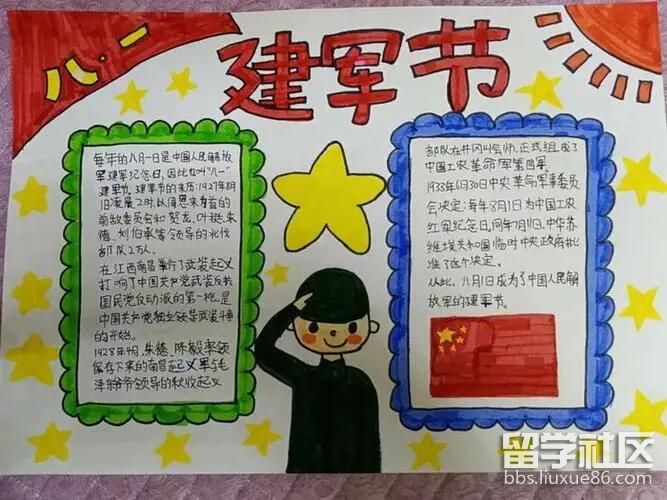 八·一
建军节
每年的八月一日是中国人民解放
军建军纪念日,因此也叫"八一"
建军节。建军节的来历:1927年8月
1日凌晨2时,以周恩来为首的
前敌委员会和贺龙、叶挺、朱
德、刘伯承等领导的北伐
部队2万人。
在江西南昌举行了武装起义
打响了中国共产党武装反抗
国民党反动派的第一枪,是
中国共产党独立领导武装斗争
的开始。
1928年4月,朱德、陈毅率领
保存下来的南昌起义军与毛
泽东爷爷领导的秋收起义
部队在井冈山会师,正式组成了
中国工农革命军第四军。
1933年6月30日中央革命军事委员
会决定:每年8月1日为中国工农
红军纪念日,同年7月11日,中华苏
维埃共和国临时中央政府批
准了这个决定。
从此,八月1日成为了中国人民解
放军的建军节。
留学社区
bbs.liuxue86.com